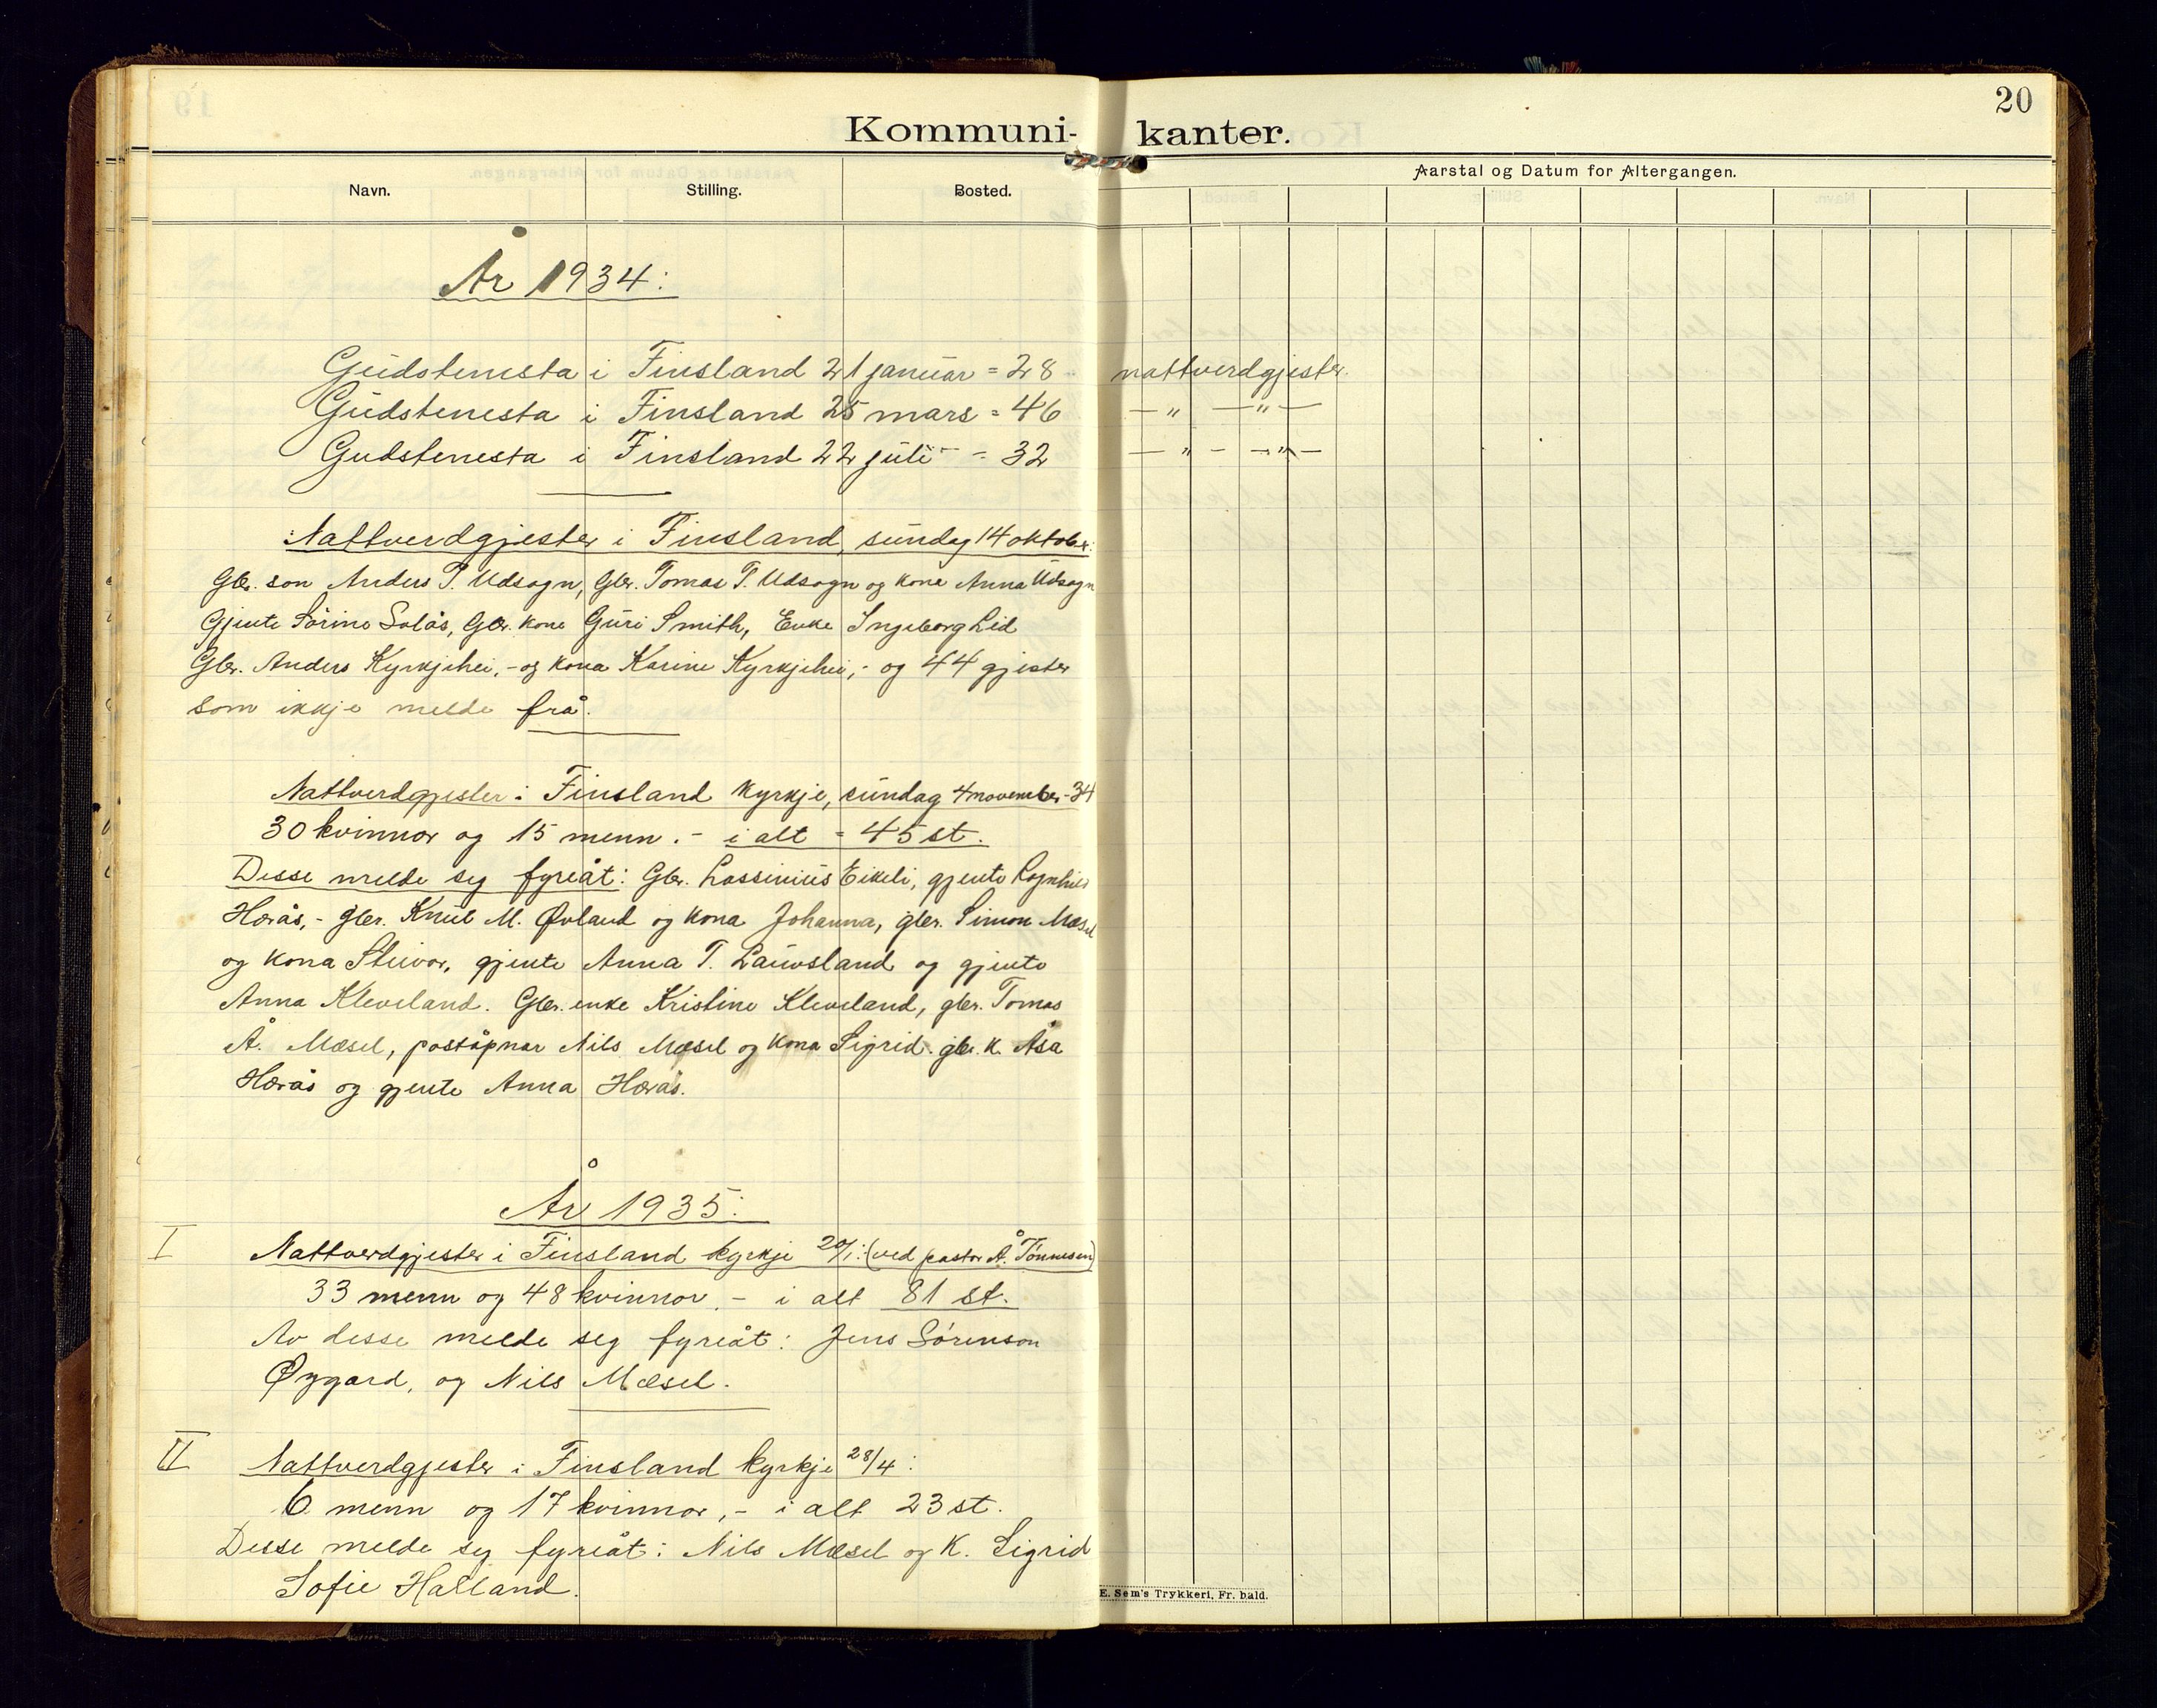 20
Kommuni-kanter.
Navn. Stilling. Bosted. Aarstal og Datum for Altergangen.
År 1934:
Gudstenesta i Finsland 21 januar = 28 nattverdgjester.
Gudstenesta i Finsland 25 mars = 46 — " — " —
Gudstenesta i Finsland 22 juli - = 32 — " - — " —
Nattverdgjester i Finsland, sundag 14 oktober:
Gbr. son Anders T. Udsogn, Gbr. Tomas T. Udsogn og kone Anna Udsogn
Gjente Sørine Solås, Gbr. kone Guri Smith, Enke Ingeborg Lid
Gbr. Anders Kyrkjehei, - og kona Karine Kyrkjehei, - og 44 gjester
som ikkje melde frå.
Nattverdgjester i Finsland kyrkje, sundag 4 november - 34
30 kvinnor og 15 menn. - i alt = 45 st.
Desse melde seg fyreåt: Gbr. Lassinius Eikeli, gjente Ragnhild
Herås, - gbr. Knut M. Øvland og kona Johanna, gbr. Simon Mæsel
og kona Steivor, gjente Anna T. Lauvsland og gjente
Anna Kleveland. Gbr. enke Kristine Kleveland, gbr. Tomas
Å. Mæsel, poståpnar Nils Mæsel og kona Sigrid. gbr. k. Åsa
Herås og gjente Anna Herås.
År 1935:
I Nattverdgjester i Finsland kyrkje 20/1: (ved pastor Å. Tønnesen)
33 menn og 48 kvinnor, - i alt 81 st.
Av desse melde seg fyreåt: Jens Sørenson
Øygard, og Nils Mæsel.
II Nattverdgjester i Finsland kyrkje 28/4:
6 menn og 17 kvinnor, - i alt 23 st.
Desse melde seg fyreåt: Nils Mæsel og K. Sigrid
Sofie Halland.
E. Sem's Trykkeri, Fr. hald.